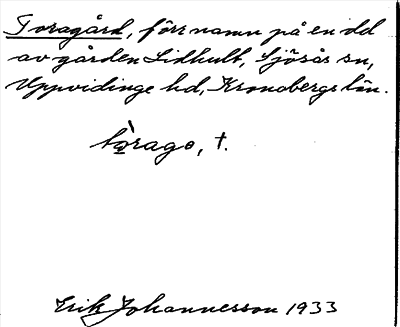 Toragård, förr namn på en del
av gården Lidhult, Sjösås sn,
Uppvidinge hd, Kronobergs län.
tòrago, †.
Erik Johannesson 1933